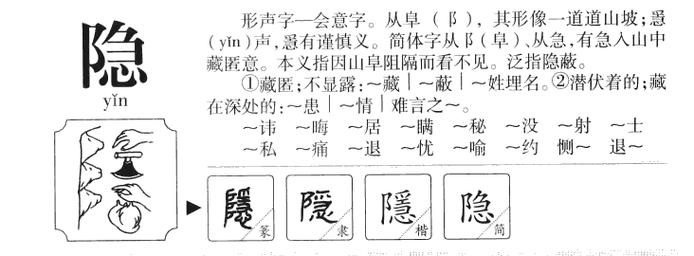 隐
yǐn
形声字—会意字。从阜（阝），其形像一道道山坡；㥯
（yǐn）声，㥯有谨慎义。简体字从阝（阜）、从急，有急入山中
藏匿意。本义指因山阜阻隔而看不见。泛指隐蔽。
①藏匿；不显露：～藏｜～蔽｜～姓埋名。②潜伏着的；藏
在深处的：～患｜～情｜难言之～。
～讳 ～晦 ～居 ～瞒 ～秘 ～没 ～射 ～士
～私 ～痛 ～退 ～忧 ～喻 ～约 恻～ 退～
隱 篆
隱 隶
隱 楷
隐 简